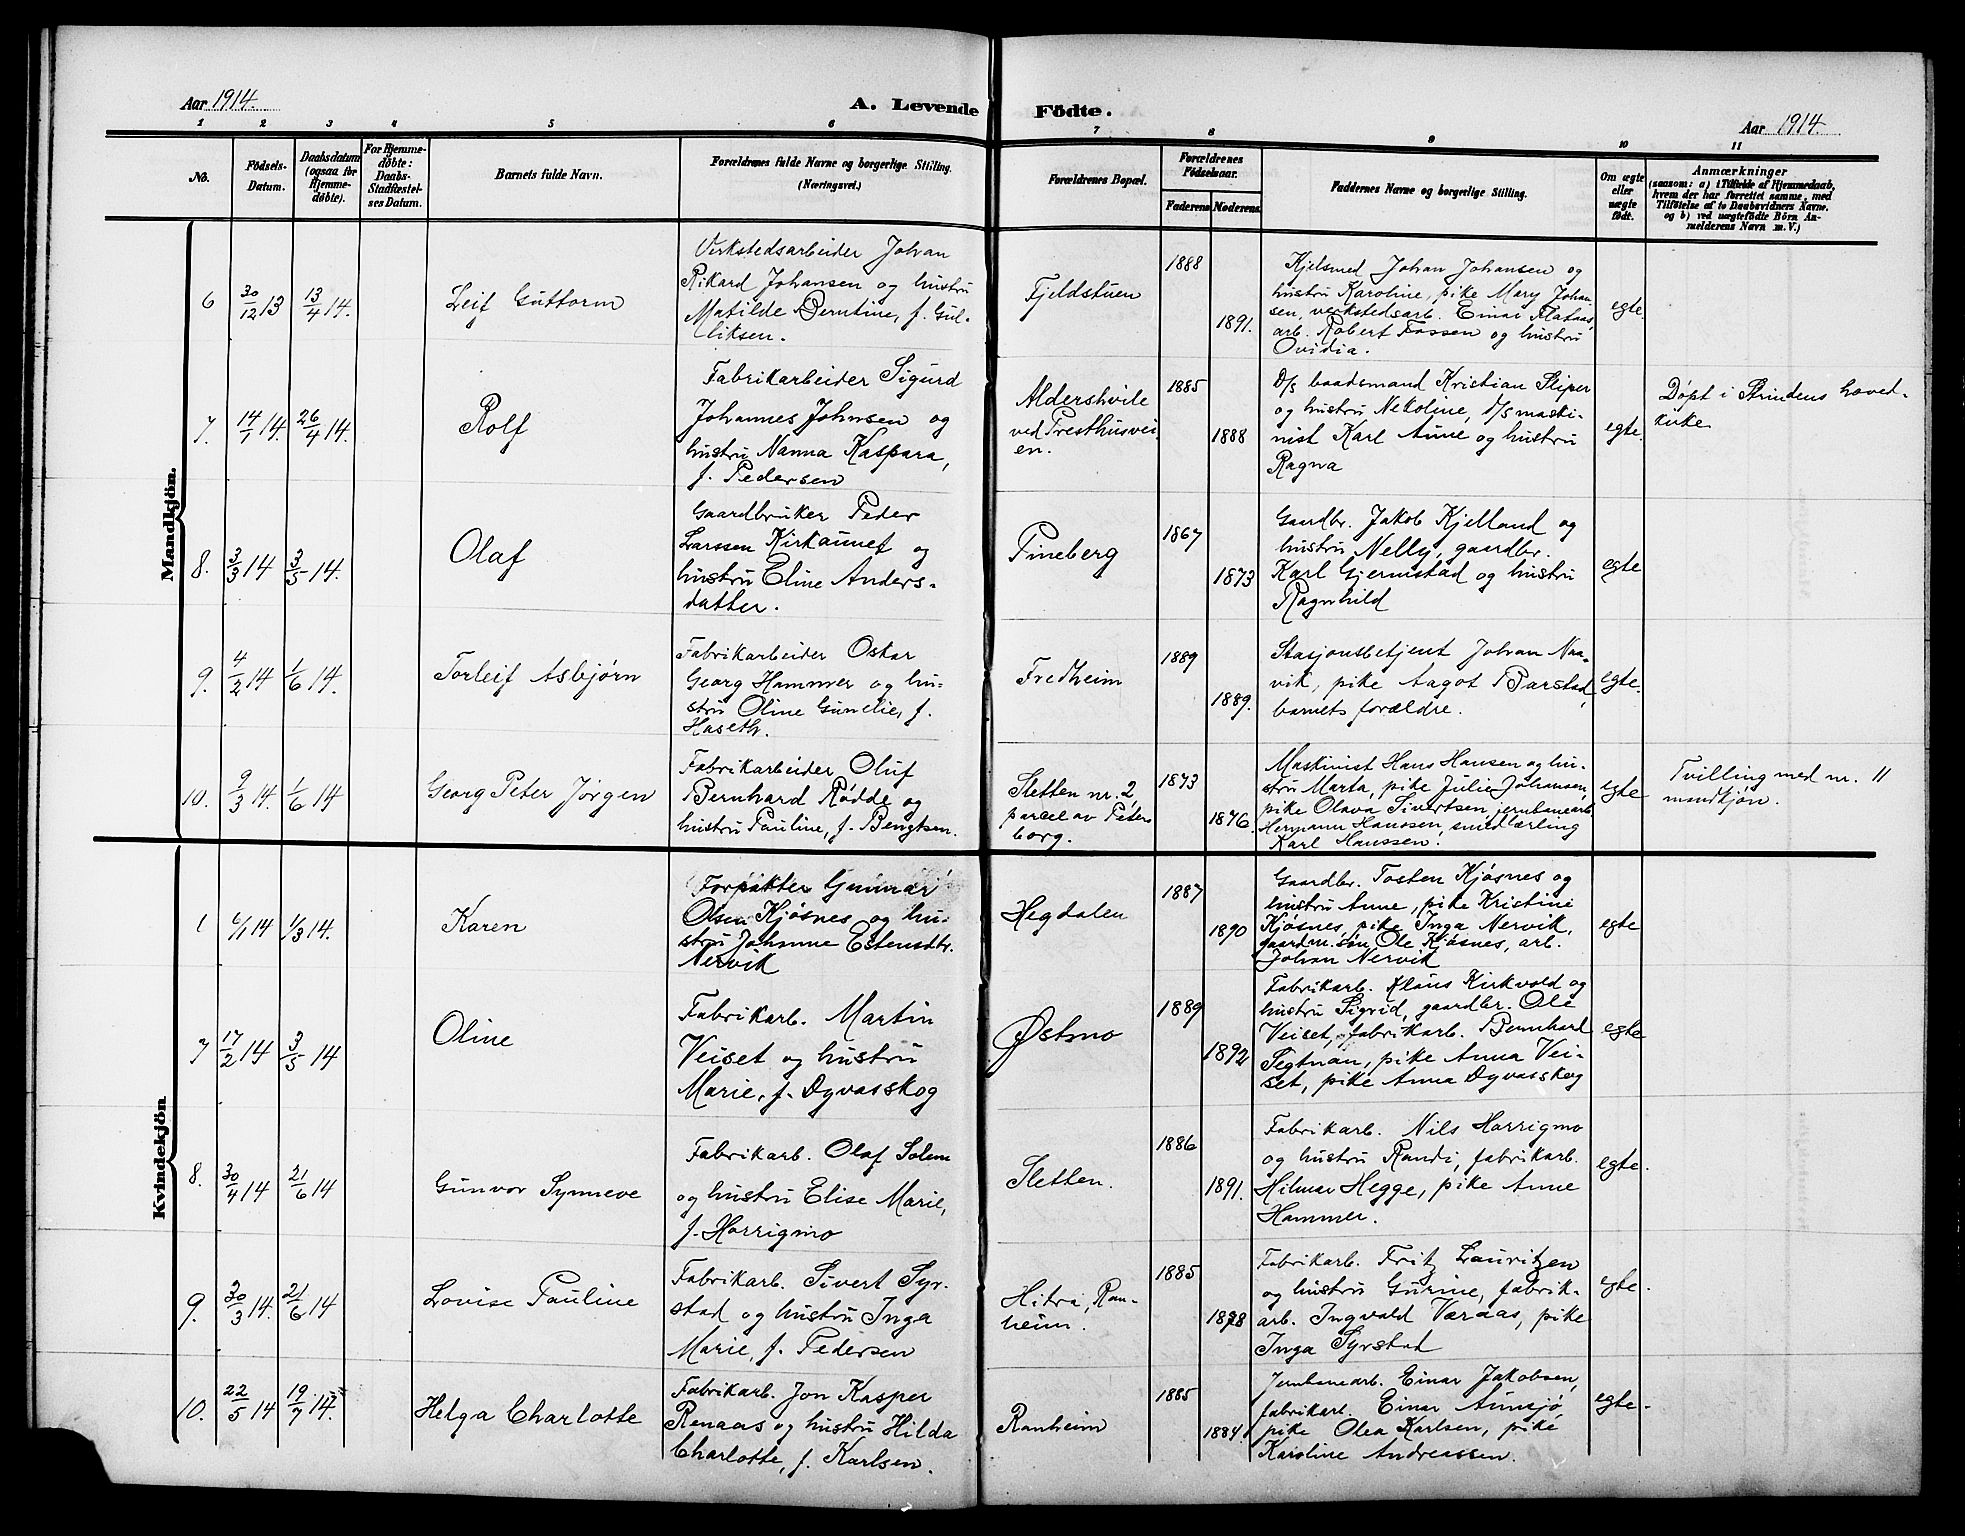 Aar 1914.
A. Levende Födte.
Aar 1914.
1 2 3 4 5 6 7 8 9 10 11
No.
Födsels-
Datum.
Daabsdatum
(ogsaa for
Hjemme-
døbte).
For Hjemme-
døbte:
Daabs-
Stadfæstel-
ses Datum.
Barnets fulde Navn.
Forældrenes fulde Navne og borgerlige Stilling.
(Næringsvei.)
Forældrenes Bopæl.
Forældrenes
Fødselsaar.
Faderens Moderens.
Faddernes Navne og borgerlige Stilling.
Om ægte
eller
uægte
født.
Anmærkninger
(saasom: a) i Tilfælde af Hjemmedaab,
hvem der har forrettet samme, med
Tilføielse af to Daabsvidners Navne.
og b) ved uægtefödte Börn An-
melderens Navn m. V.)
Mandkjön.
6 30/12 13 13/4 14. Leif Guttorm
Verkstedsarbeider Johan
Rikard Johansen og hustru
Matilde Berntine, f. Gul-
liksen.
Fjeldstuen
1888
1891.
Kjelsmed Johan Johansen og
hustru Karoline, pike Mary Johan-
sen, verkstedsarb. Einar Flataas,
arb. Robert Fossen og hustru
Ovidia.
egte.
7. 14/1 14. 26/4 14. Rolf
Fabrikarbeider Sigurd
Johannes Johnsen og
hustru Nanna Kaspara,
f. Pedersen
Aldershvile
ved Presthusvei-
en.
1885
1888
D/s baadsmand Kristian Sliper
og hustru Nekoline, d/s maski-
nist Karl Aune og hustru
Ragna
egte.
Døpt i Strindens hoved-
kirke
8. 3/3 14 3/5 14. Olaf
Gaardbruker Peder
Larssen Kirkaunet og
hustru Eline Anders-
datter.
Pineberg
1867
1873
Gaardbr. Jakob Kjelland og
hustru Nelly, gaardbr.
Karl Gjermstad og hustru
Ragnhild
egte
9. 4/2 14 1/6 14. Torleif Asbjørn
Fabrikarbeider Oskar
Georg Hammer og hu-
stru Oline Gunelie, f.
Haseth.
Fredheim
1889
1889.
Stasjonsbetjent Johan Naa-
vik, pike Aagot Barstad,
barnets forældre.
egte.
10. 9/3 14. 1/6 14 Georg Peter Jørgen
Fabrikarbeider Oluf
Bernhard Rødde og
hustru Pauline, f. Bengtsen.
Sletten nr. 2
parcel av Peters-
borg.
1873
1876.
Maskinist Hans Hansen og hu-
stru Marta, pike Julie Johansen,
pike Olava Sivertsen, jernbanearb.
Hermann Hanssen, smedlærling
Karl Hanssen.
egte
Tvilling med nr. 11
mandkjøn.
Kvindekjön
1 6/1 14 1/3 14. Karen
Forpakter Gunnar
Olsen Kjøsnes og hu-
stru Johanne Estensdtr.
Nervik
Hegdalen
1887
1890
Gaardbr. Tosten Kjøsnes og
hustru Anne, pike Kristine
Kjøsnes, pike Inga Nervik,
gaardm. søn Ole Kjøsnes, arb.
Johan Nervik
egte
7 17/2 14 3/5 14 Oline
Fabrikarb. Martin
Veiset og hustru
Marie, f. Dyvasskog
Østmo
1889
1892
Fabrikarb. Klaus Kirkvold og
hustru Sigrid, gaardbr. Ole
Veiset, fabrikarb. Bernhard
Segtnan, pike Anna Vei-
set, pike Anna Dyvasskog
egte
8. 30/4 14 21/6 14 Gunvor Synneve
Fabrikarb. Olaf Solem
og hustru Elise Marie,
f. Horrigmo
Sletten.
1886
1891.
Fabrikarb. Nils Horrigmo
og hustru Randi, fabrikarb.
Hilmar Hegge, pike Anne
Hammer.
egte.
9. 30/3 14. 21/6 14 Lovise Pauline
Fabrikarb. Sivert Syr-
stad og hustru Inga
Marie, f. Pedersen
Hitra, Ran-
heim.
1885
1878
Fabrikarb. Fritz Lauritzen
og hustru Gurine, fabrik-
arb. Ingvald Væraas, pike
Inga Syrstad
egte.
10. 22/5 14 19/7 14. Helga Charlotte
Fabrikarb. Jon Kasper
Renaas og hustru Hilda
Charlotte, f. Karlsen.
Ranheim
1885
1884.
Jernbanearb. Einar Jakobsen,
fabrikarb. Einar Aunsjø,
pike Olea Karlsen, pike
Karoline Andreassen.
egte.